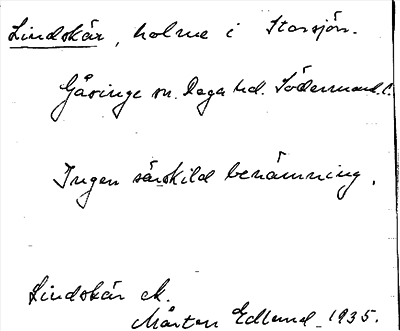 Lindskär, holme i Storsjön.
Gåsinge sn. Daga hd. Södermanl. l.
Ingen särskild benämning.
Lindskär ek.
Mårten Edlund 1935.